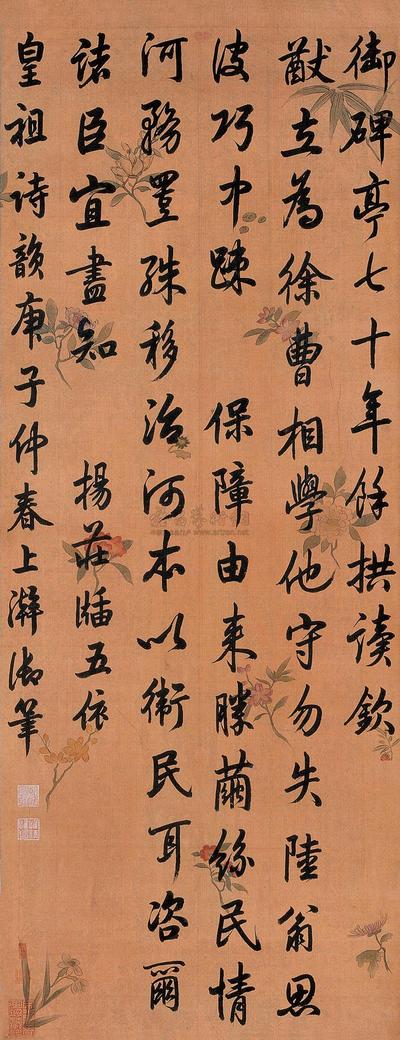 御碑亭七十年餘拱讀欽
猷立為徐曹相學他守勿失陸翁思
波巧中踈 保障由来勝繭絲民情
河務豈殊移治河本以衛民耳咨爾
諸臣宜盡知 揚莊牐五依
皇祖詩韻庚子仲春上澣御筆